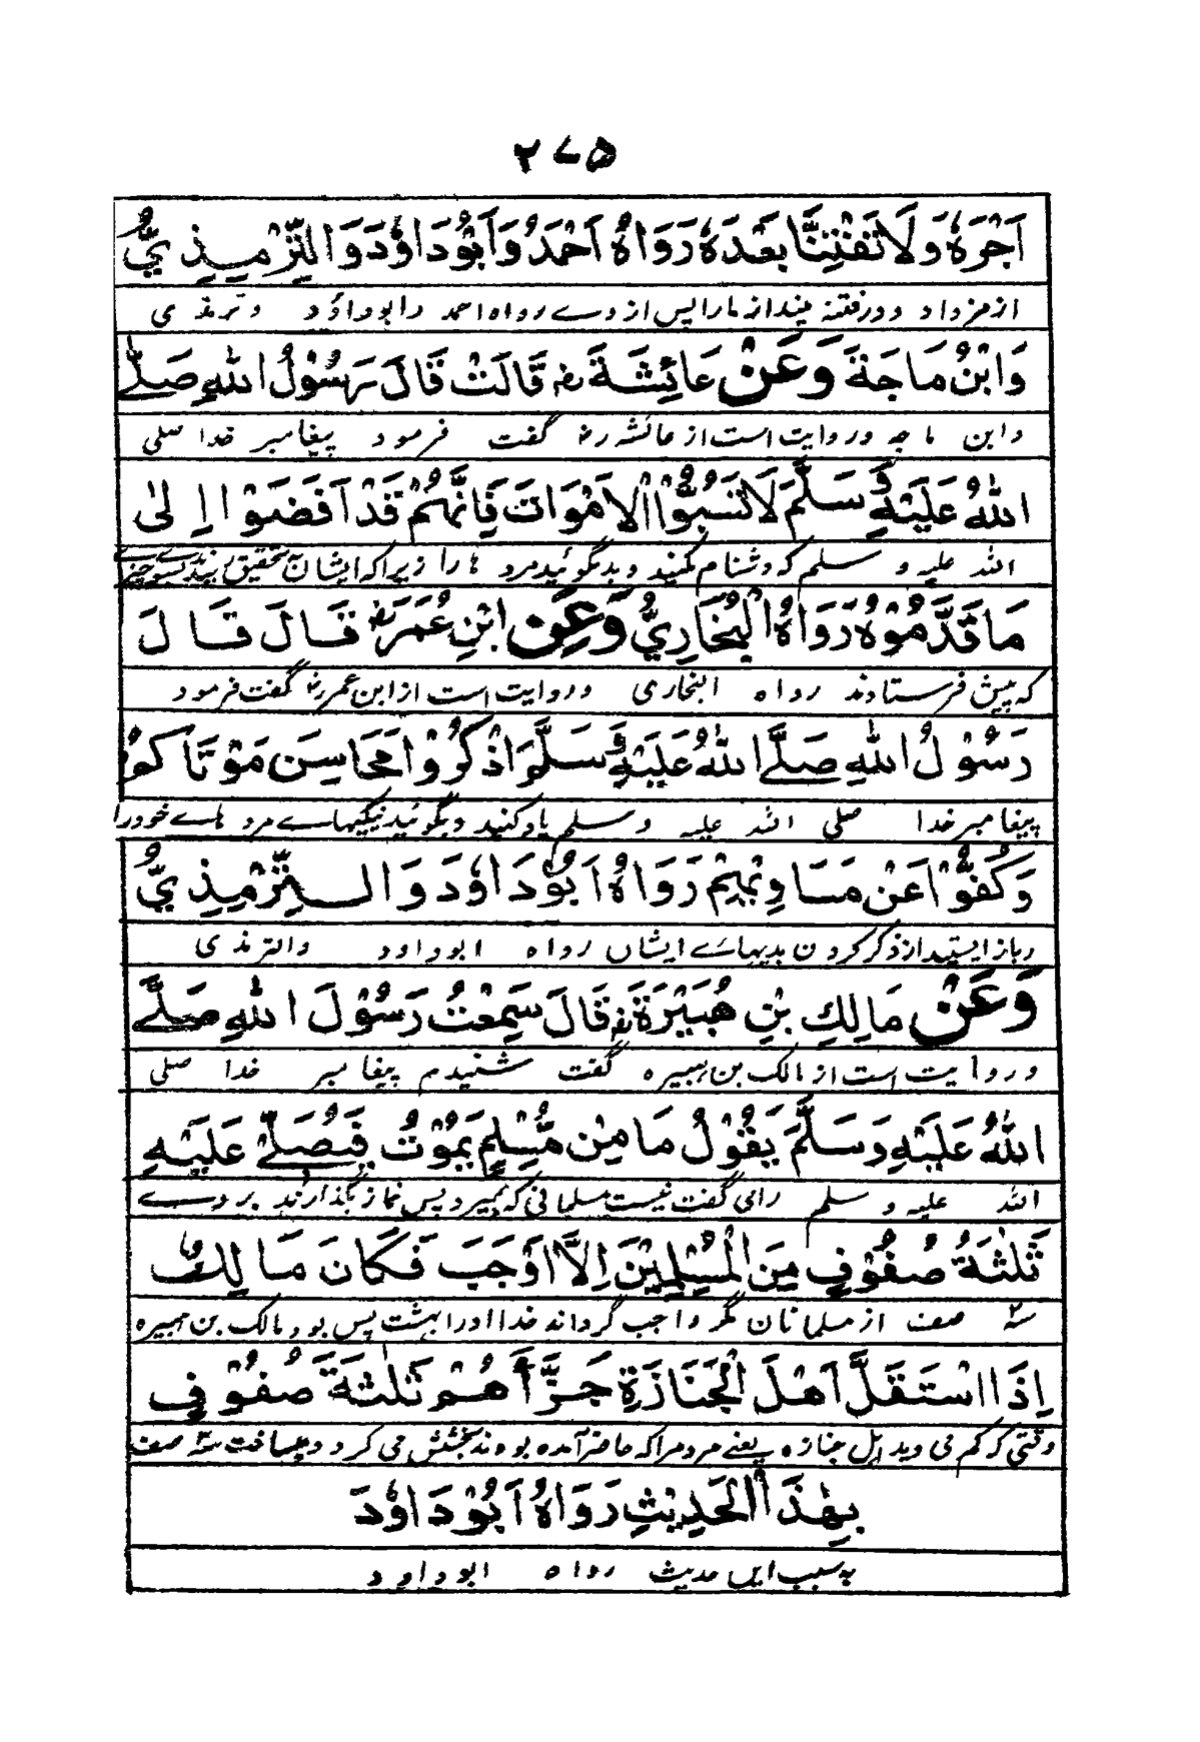 ٢٧٥
اَجْرَهٗ وَلَا تَفْتِنَّا بَعْدَهٗ رَوَاهُ اَحْمَدُ وَاَبُوْدَاوٗدَ وَالتِّرْمِيذِيُّ
از مزد او و در فتنه میندازما را پس از وے رواه احمد وابوداؤد وترمذی
وَابْنُ مَاجَةَ وَعَنْ عَائِشَةَ رض قَالَتْ قَالَ رَسُوْلُ اللهِ صَلَّے
وابن ماجه وروایت است از عائشه رض گفت فرمود پیغامبر خدا صلی
اللهُ عَلَيْهِ وَسَلَّمَ لَا تَسُبُّوْا الْاَمْوَاتَ فَاِنَّهُمْ قَدْ اَفَضَوْا اِلٰى
الله علیه و سلم که دشنام مکنید و بد مگوئید مرد ها را زیرا که ایشان بتحقیق
مَا قَدَّمُوْهُ رَوَاهُ الْبُخَارِيُّ وَعَنِ ابْنِ عُمَرَ رض قَالَ قَالَ
که پیش فرستادند رواه البخاری وروایت است از ابن عمر رض گفت فرمود
رَسُوْلُ اللهِ صَلَّے اللهُ عَلَيْهِ وَسَلَّمَ اذْكُرُوْا مَحَاسِنَ مَوْتَاكُمْ
پیغامبر خدا صلی الله علیه وسلم یاد کنید و بگوئید نیکیهاے مرد هاے خود را
وَكُفُّوْا عَنْ مَسَاوِيْهِمْ رَوَاهُ اَبُوْدَاوٗدَ وَالتِّرْمِيذِيُّ
وباز ایستید از ذکر کردن بدیهائے ایشان رواه ابوداود والترمذی
وَعَنْ مَالِكِ بْنِ هُبَيْرَةَ رض قَالَ سَمِعْتُ رَسُوْلَ اللهِ صَلَّے
وروایت است از مالک بن هبیره گفت شنیدم پیغامبر خدا صلی
اللهُ عَلَيْهِ وَسَلَّمَ يَقُوْلُ مَا مِنْ مُّسْلِمٍ يَمُوْتُ فَيُصَلِّےْ عَلَيْهِ
الله علیه و سلم رامی گفت نیست مسلمانی که بمیرد پس نماز بگذارند بروے
ثَلٰثَةُ صُفُوْفٍ مِنَ الْمُسْلِمِيْنَ اِلَّا اَوْجَبَ فَكَانَ مَالِكٌ
سه صف از مسلمانان مگر واجب گرداند خدا او را بهشت پس بود مالک بن هبیره
اِذَا اسْتَقَلَّ اَهْلَ الْجَنَازَةِ جَزَّأَهُمْ ثَلٰثَةَ صُفُوْفٍ
وقتی که کم می دید اهل جنازه یعنے مردم را که حاضر آمده بودند بخشش می کرد و میساخت سه صف
بِهٰذَا الْحَدِيْثِ رَوَاهُ اَبُوْدَاوٗدَ
به سبب این حدیث رواه ابوداود